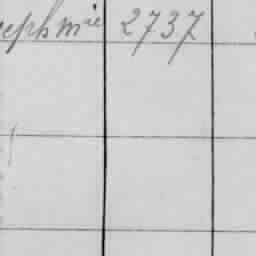 seph mie 2737